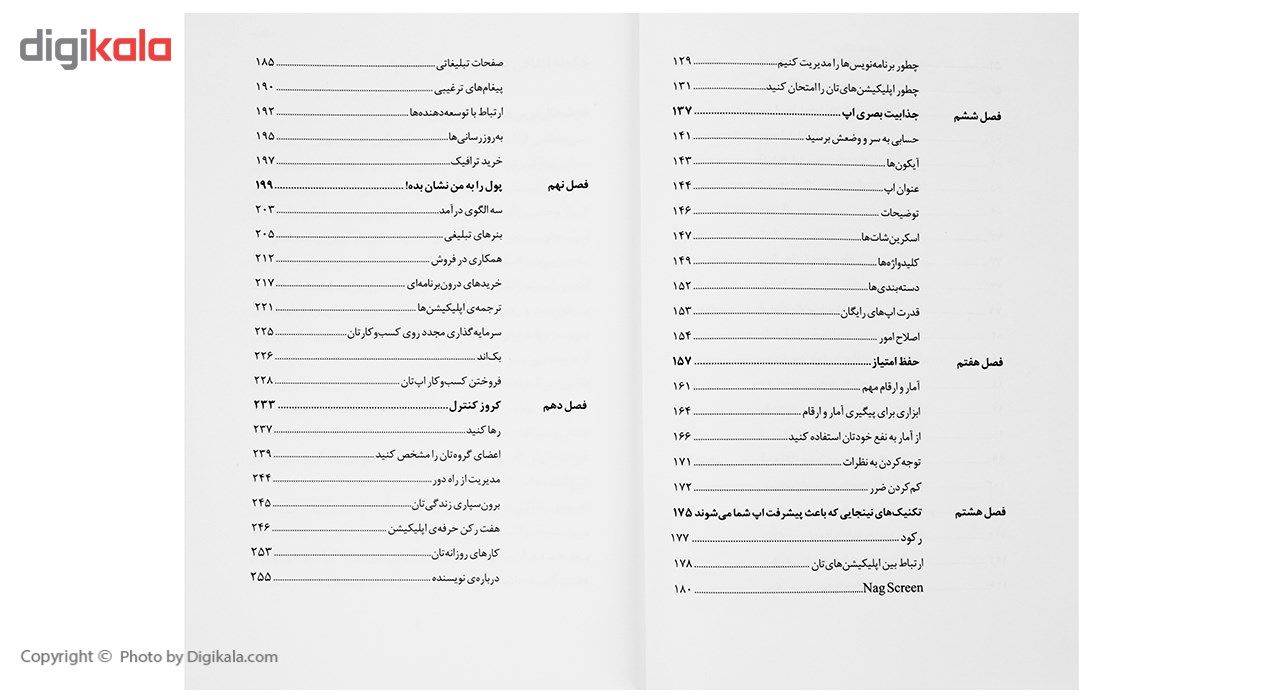 digikala
چطور برنامه‌نویس‌ها را مدیریت کنیم ........ ۱۲۹
چطور اپلیکیشن‌های‌تان را امتحان کنید ........ ۱۳۱
فصل ششم جذابیت بصری اپ ........ ۱۳۷
حسابی به سر و وضعش برسید ........ ۱۴۱
آیکون‌ها ........ ۱۴۳
عنوان اپ ........ ۱۴۴
توضیحات ........ ۱۴۶
اسکرین‌شات‌ها ........ ۱۴۷
کلیدواژه‌ها ........ ۱۴۹
دسته‌بندی‌ها ........ ۱۵۲
قدرت اپ‌های رایگان ........ ۱۵۳
اصلاح امور ........ ۱۵۴
فصل هفتم حفظ امتیاز ........ ۱۵۷
آمار و ارقام مهم ........ ۱۶۱
ابزاری برای پیگیری آمار و ارقام ........ ۱۶۴
از آمار به نفع خودتان استفاده کنید ........ ۱۶۶
توجه‌کردن به نظرات ........ ۱۷۱
کم‌کردن ضرر ........ ۱۷۲
فصل هشتم تکنیک‌های نینجایی که باعث پیشرفت اپ شما می‌شوند ۱۷۵
رکود ........ ۱۷۷
ارتباط بین اپلیکیشن‌های‌تان ........ ۱۷۸
Nag Screen ........ ۱۸۰
صفحات تبلیغاتی ........ ۱۸۵
پیغام‌های ترغیبی ........ ۱۹۰
ارتباط با توسعه‌دهنده‌ها ........ ۱۹۲
به‌روزرسانی‌ها ........ ۱۹۵
خرید ترافیک ........ ۱۹۷
فصل نهم پول را به من نشان بده! ........ ۱۹۹
سه الگوی درآمد ........ ۲۰۳
بنرهای تبلیغی ........ ۲۰۵
همکاری در فروش ........ ۲۱۲
خریدهای درون‌برنامه‌ای ........ ۲۱۷
ترجمه‌ی اپلیکیشن‌ها ........ ۲۲۱
سرمایه‌گذاری مجدد روی کسب‌وکارتان ........ ۲۲۵
بک‌اند ........ ۲۲۶
فروختن کسب‌وکار اپ‌تان ........ ۲۲۸
فصل دهم کروز کنترل ........ ۲۳۳
رها کنید ........ ۲۳۷
اعضای گروه‌تان را مشخص کنید ........ ۲۳۹
مدیریت از راه دور ........ ۲۴۴
برون‌سپاری زندگی‌تان ........ ۲۴۵
هفت رکن حرفه‌ی اپلیکیشن ........ ۲۴۶
کارهای روزانه‌تان ........ ۲۵۳
درباره‌ی نویسنده ........ ۲۵۵
Copyright © Photo by Digikala.com